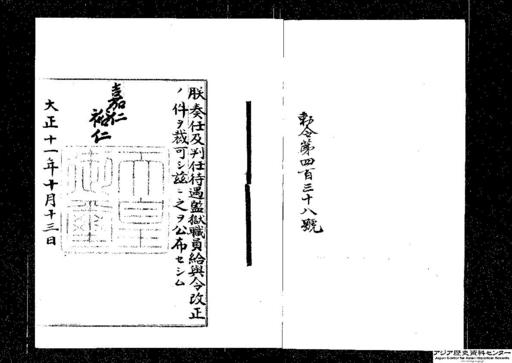 勅令第四百三十八號
朕奏任及判任待遇監獄職員給與令改正
ノ件ヲ裁可シ茲ニ之ヲ公布セシム
嘉仁
裕仁
大正十一年十月十三日
天皇御璽
アジア歴史資料センター
Japan Center for Asian Historical Records